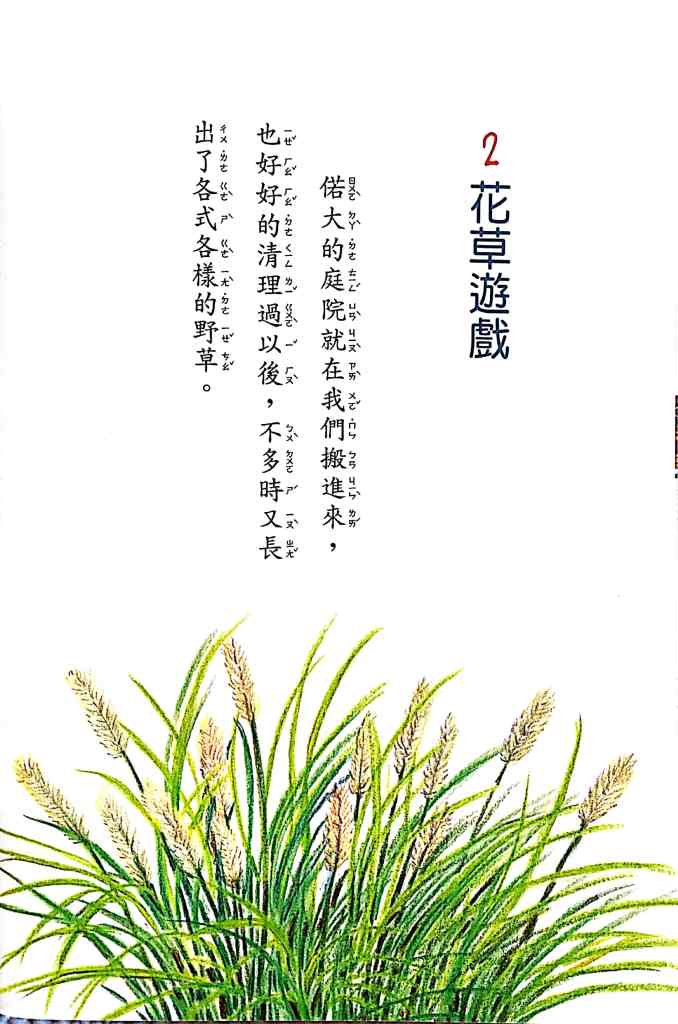 2 花草遊戲
偌大的庭院就在我們搬進來，
也好好的清理過以後，不多時又長
出了各式各樣的野草。